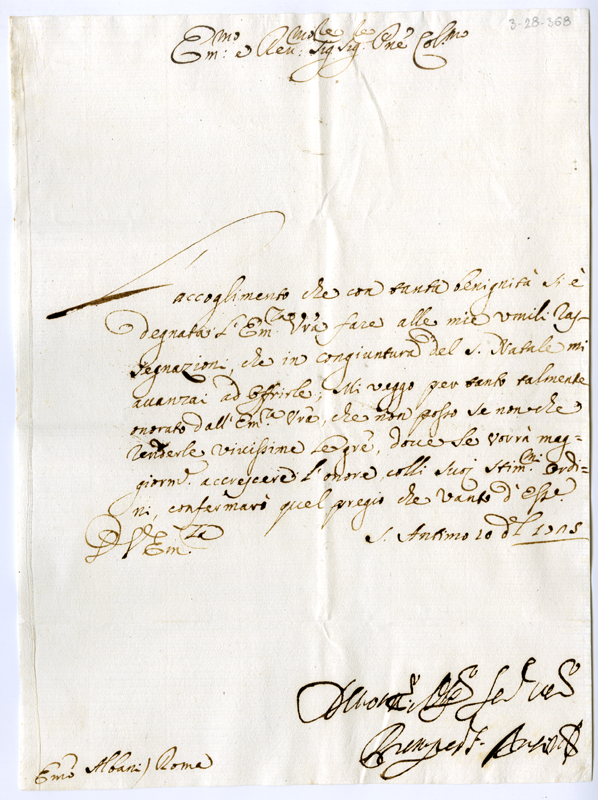 3-28-368
Em:mo e Reu:mo Sig Sig. Pne Col.mo
L'accoglimento che con tanta benignità si è
degnata l'Em.za Vrã fare alle mie umili Ras-
segnazioni, che in congiuntura del S. Natale mi
avanzai ad offrirle; Mi veggo per tanto talmente
onorato dall'Em.za Vrã, che non posso se non che
renderle vivissime le grẽ, dove se vorrà mag-
giorm. accrescere l'onore colli suoi stim.mi ordi-
ni, confermarò quel pregio che vanto d'esse.
D V Em.za
S. Antimo 20 d
Emõ Albani) Roma